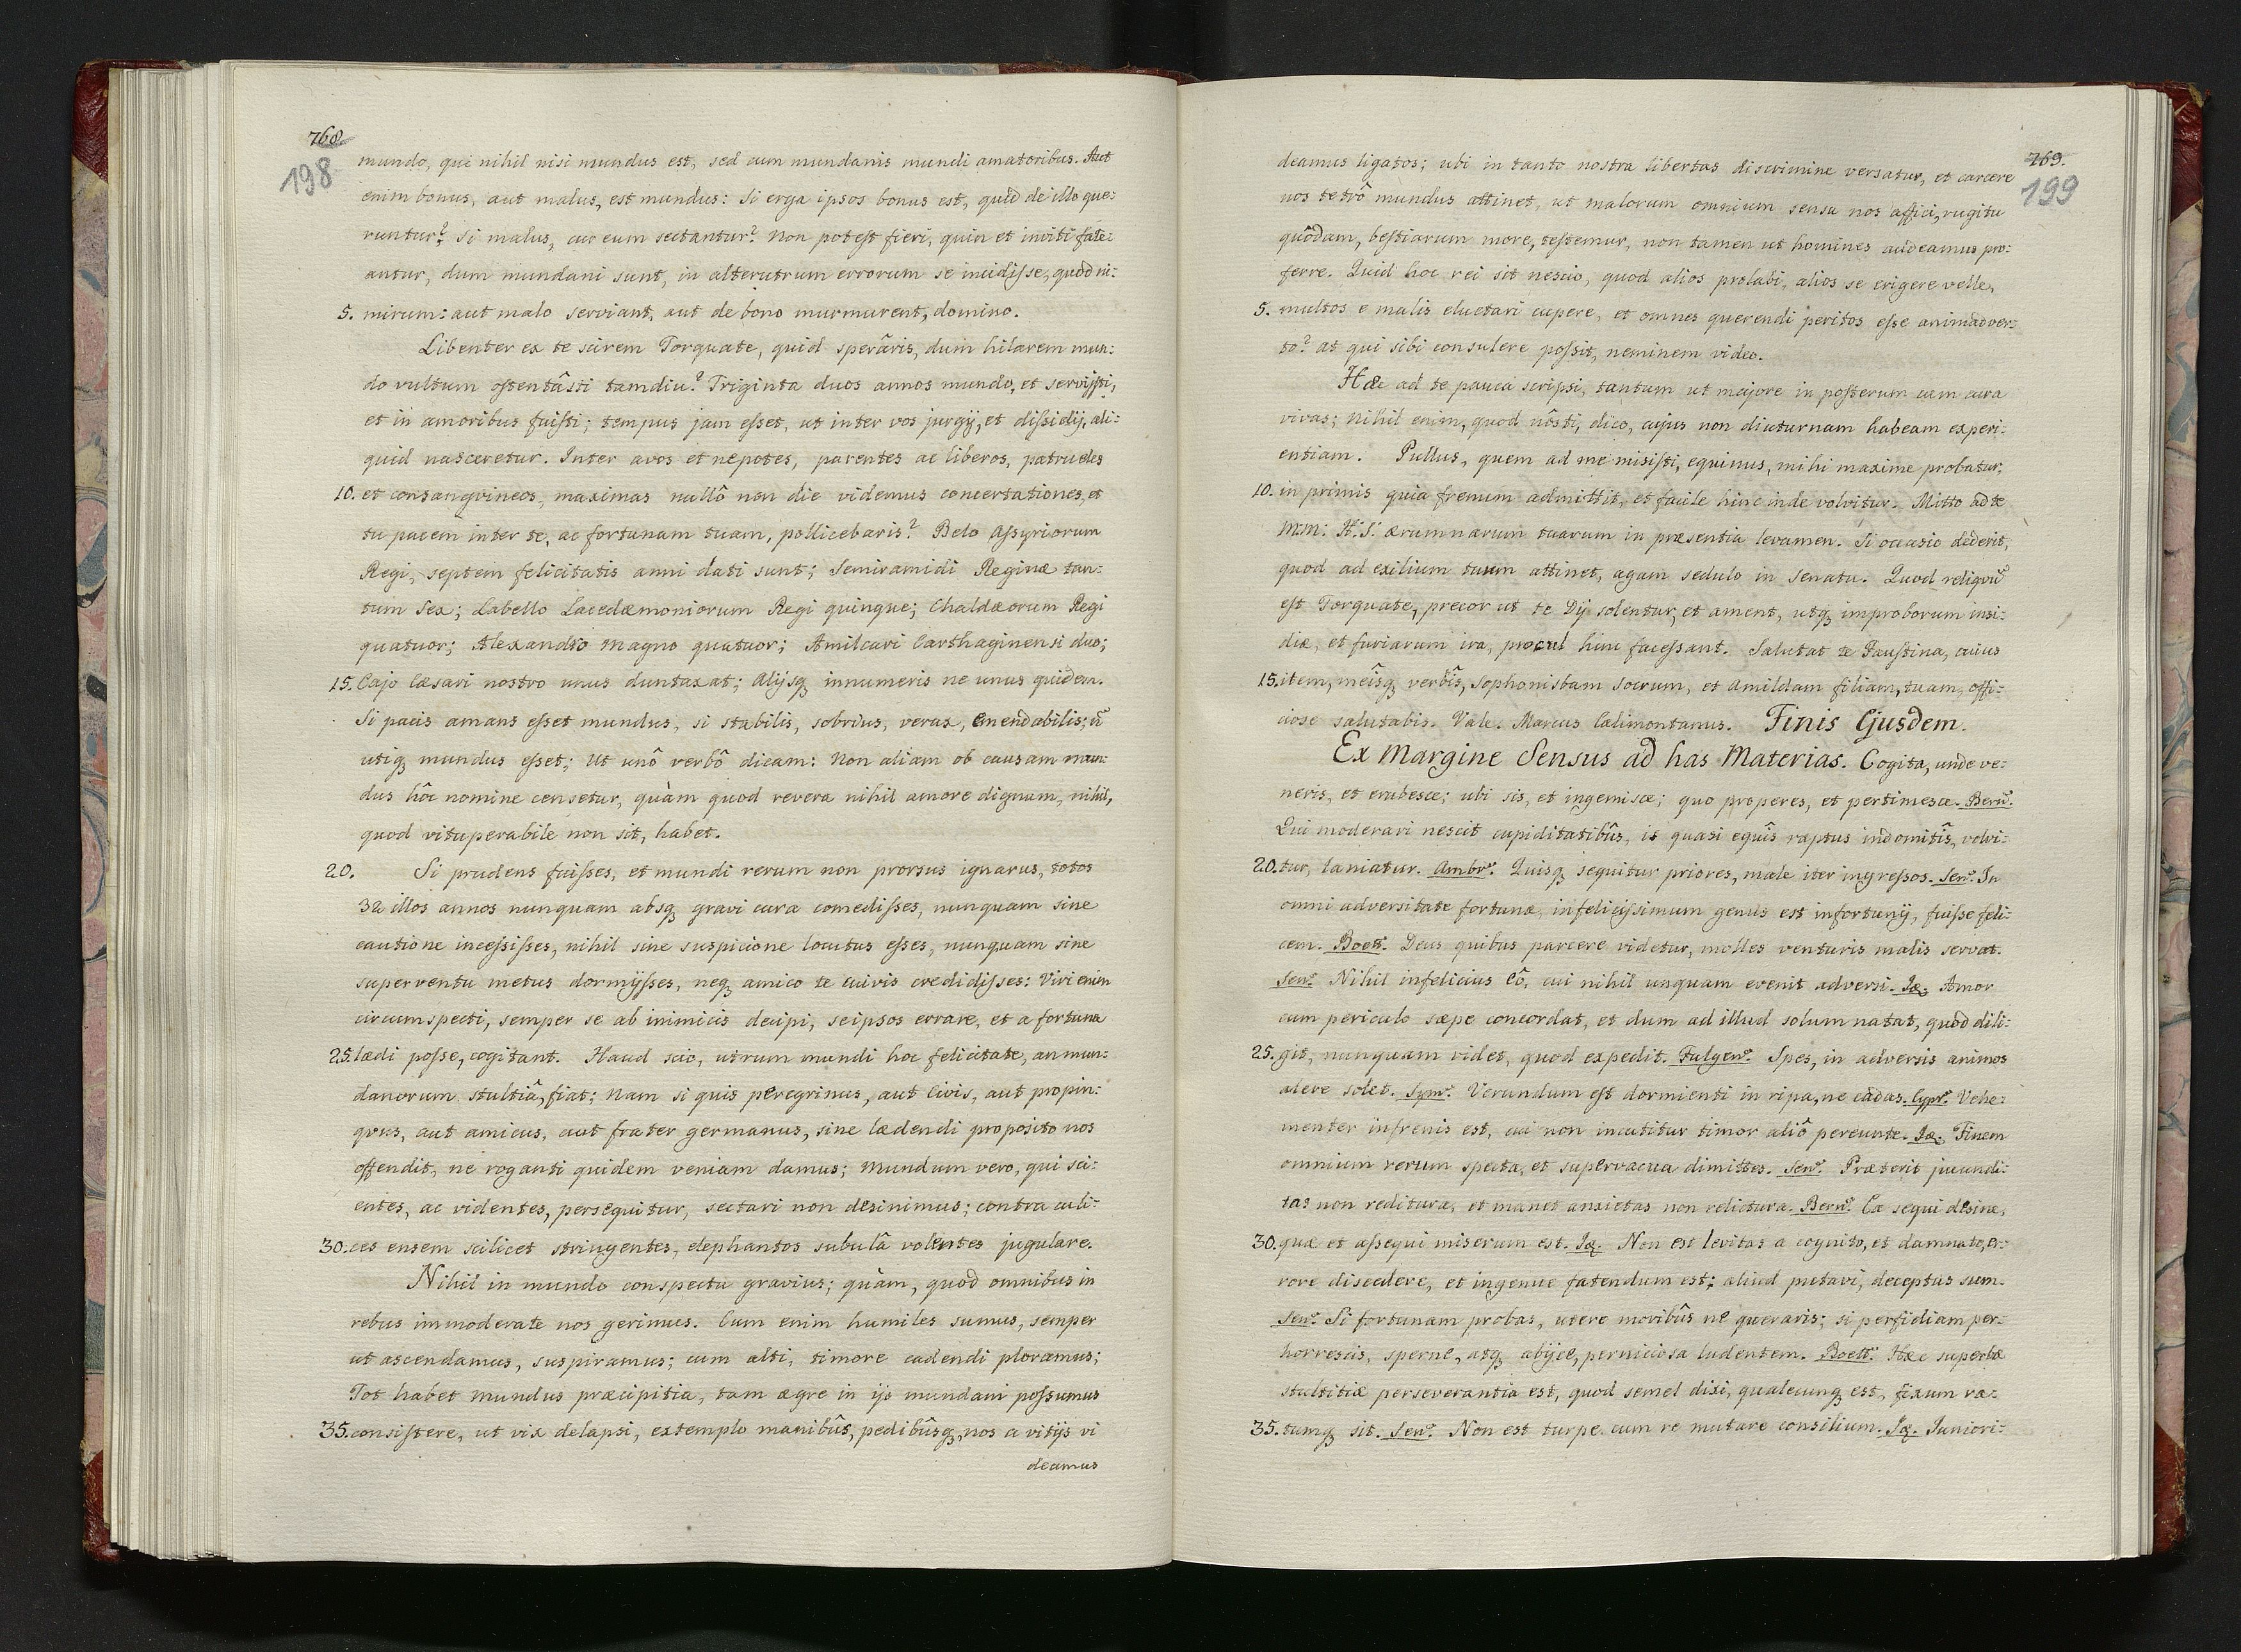 768.
198
mundo, qui nihil nisi mundus est, sed cum mundanis mundi amatoribus. Aut
enim bonus, aut malus, est mundus: Si erga ipsos bonus est, quid de illo que:
runtur? si malus, cur eum sectantur? Non potest fieri, quin et inviti fate:
antur, dum mundani sunt, in alterutrum errorum se incidisse, quod ni:
5. mirum: aut malo serviant, aut de bono murmurent, domino.
Libenter ex te scirem Torquate, quid sperâris, dum hilarem mun:
do vultum ostentâsti tamdiu? Triginta duos annos mundo, et servijsti,
et in amoribus fuisti; tempus jam esset, ut inter vos jurgij, et dissidij, ali:
quid nasceretur. Inter avos et nepotes, parentes ac liberos, patrueles
10. et consangvineos, maximas nullô non die videmus concertationes, et
tu pacem inter te, ac fortunam tuam, pollicebaris? Belo Assyriorum
Regi, septem felicitatis anni dati sunt; Semiramidi Reginæ tan:
tum sex; Labello Lacedæmoniorum Regi quinque; Chaldæorum Regi
quatuor; Alexandro Magno quatuor; Amilcari Carthaginensi duo;
15. Cajo Cæsari nostro unus duntaxat; Alijsq innumeris ne unus quidem.
Si pacis amans esset mundus, si stabilis, sobrius, verax, emendabilis; ñ
utiq mundus esset; Ut unô verbô dicam: Non aliam ob causam mun:
dus hôc nomine censetur, quàm quod revera nihil amore dignum, nihil,
quod vituperabile non sit, habet.
20. Si prudens fuisses, et mundi rerum non prorsus ignarus, totos
32 illos annos nunquam absq gravi cura comedisses, nunquam sine
cautione incessisses, nihil sine suspicione locutus esses, nunquam sine
superventu metus dormijsses, neq amico te cuivis credidisses: Viri enim
circumspecti, semper se ab inimicis decipi, seipsos errare, et a fortuna
25. lædi posse, cogitant. Haud scio, utrum mundi hoc felicitate, an mun:
danorum stultiâ, fiat; Nam si quis peregrinus, aut Civis, aut propin:
qvus, aut amicus, aut frater germanus, sine lædendi proposito nos
offendit, ne roganti quidem veniam damus; Mundum vero, qui sci:
entes, ac videntes, persequitur, sectari non desinimus; contra culi:
30. ces ensem scilicet stringentes, elephantos subulâ volentes jugulare.
Nihil in mundo conspectu gravius; quàm, quod omnibus in
rebus immoderate nos gerimus. Cum enim humiles sumus, semper
ut ascendamus, suspiramus; cum alti, timore cadendi ploramus;
Tot habet mundus præcipitia, tam ægre in ijs mundani possumus
35. consistere, ut vix delapsi, extemplo manibûs, pedibûsq, nos a vitijs vi
deamus
769.
199
deamus ligatos; ubi in tanto nostra libertas discrimine versatur, et carcere
nos tetrô mundus attinet, ut malorum omnium sensu nos affici, rugitu
quôdam, bestiarum more, testemur, non tamen ut homines audeamus pro:
ferre. Quid hoc rei sit nescio, quod alios prolabi, alios se erigere velle,
5. multos e malis eluctari cupere, et omnes querendi peritos esse animadver:
to? at qui sibi consulere possit, neminem video.
Hæc ad te pauca scripsi, tantum ut majore in posterum cum cura
vivas; nihil enim, quod nôsti, dico, cujus non diuturnam habeam experi:
entiam. Pullus, quem ad me misisti, equinus, mihi maxime probatur;
10. in primis quia frenum admittit, et facile hinc inde volvitur. Mitto ad te
MM: H:S: ærumnarum tuarum in præsentia levamen. Si occasio dederit,
quod ad exilium tuum attinet, agam sedulo in senatu. Quod reliqvũ
est Torquate, precor ut te Dij solentur, et ament, utq improborum insi:
diæ, et furiarum ira, procul hinc facessant. Salutat te Faustina, cuius
15. item, meîsq verbîs, Sophonisbam Socrum, et Amildam filiam, tuam, offi:
ciose salutabis. Vale. Marcus Cælimontanus. Finis Ejusdem.
Ex Margine Sensus ad has Materias. Cogita, unde ve:
neris, et erubesce; ubi sis, et ingemisce; quo properes, et pertimesce. Bern:
Qui moderari nescit cupiditatibûs, is quasi equîs raptus indomitîs, volvi:
20. tur, laniatur. Ambr: Quisq sequitur priores, male iter ingressos. Sen: In
omni adversitate fortunæ, infelicissimum genus est infortunij, fuisse feli:
cem. Boet: Deus quibus parcere videtur, molles venturis malis servat.
Sen: Nihil infelicius Eô, cui nihil unquam evenit adversi. Iq. Amor
cum periculo sæpe concordat, et dum ad illud solum natat, quod dili:
25. git, nunquam videt, quod expedit. Fulgen: Spes, in adversis animos
alere solet. Sym: Verundum est dormienti in ripa, ne cadas. Cypr: Vehe:
menter infrenis est, cui non incutitur timor aliô pereunte. Iq. Finem
omnium rerum specta, et supervacua dimittes. Sen: Præterit jucundi:
tas non reditura, et manet anxietas non relictura. Bern: Ea sequi desine,
30. quæ et assequi miserum est. Iq. Non est levitas a cognito, et damnato, er:
rore discedere, et ingenue fatendum est: aliud putavi, deceptus sum.
Sen: Si fortunam probas, utere moribûs ne queraris; si perfidiam per:
horrescis, sperne, atq abijce, perniciosa ludentem. Boet: Hæc superbæ
stultitiæ perseverantia est, quod semel dixi, qualecunq est, fixum ra:
35. tumq sit. Sen: Non est turpe cum re mutare consilium. Iq. Iuniori: